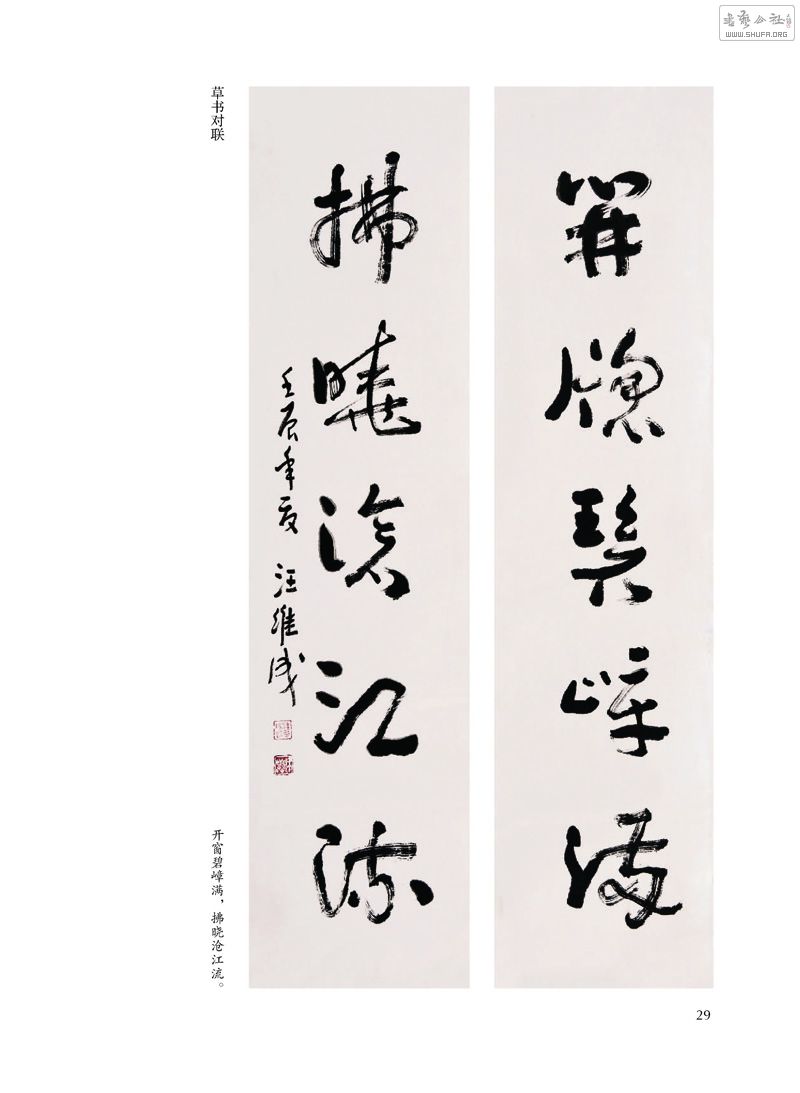 書藝公社
WWW.SHUFA.ORG
草书对联
開窗碧嶂滿
拂曉滄江流
壬辰年夏 汪維成
开窗碧嶂满，拂晓沧江流。
29